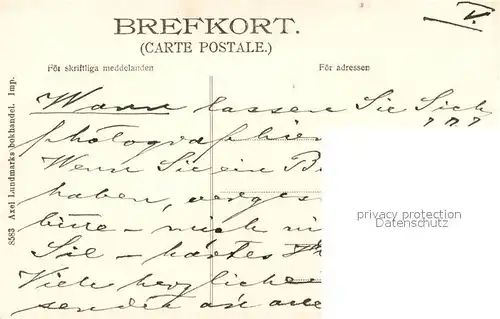 V.
BREFKORT.
(CARTE POSTALE.)
För skriftliga meddelanden
För adressen
8583 Axel Lundmarks bokhandel. Imp.
Wann lassen Sie Sich
photographie
???
Wenn Sie ein B
haben, verges
bitte - mich ni
Sie -
Viele herzliche
senden an alle
privacy protection
Datenschutz